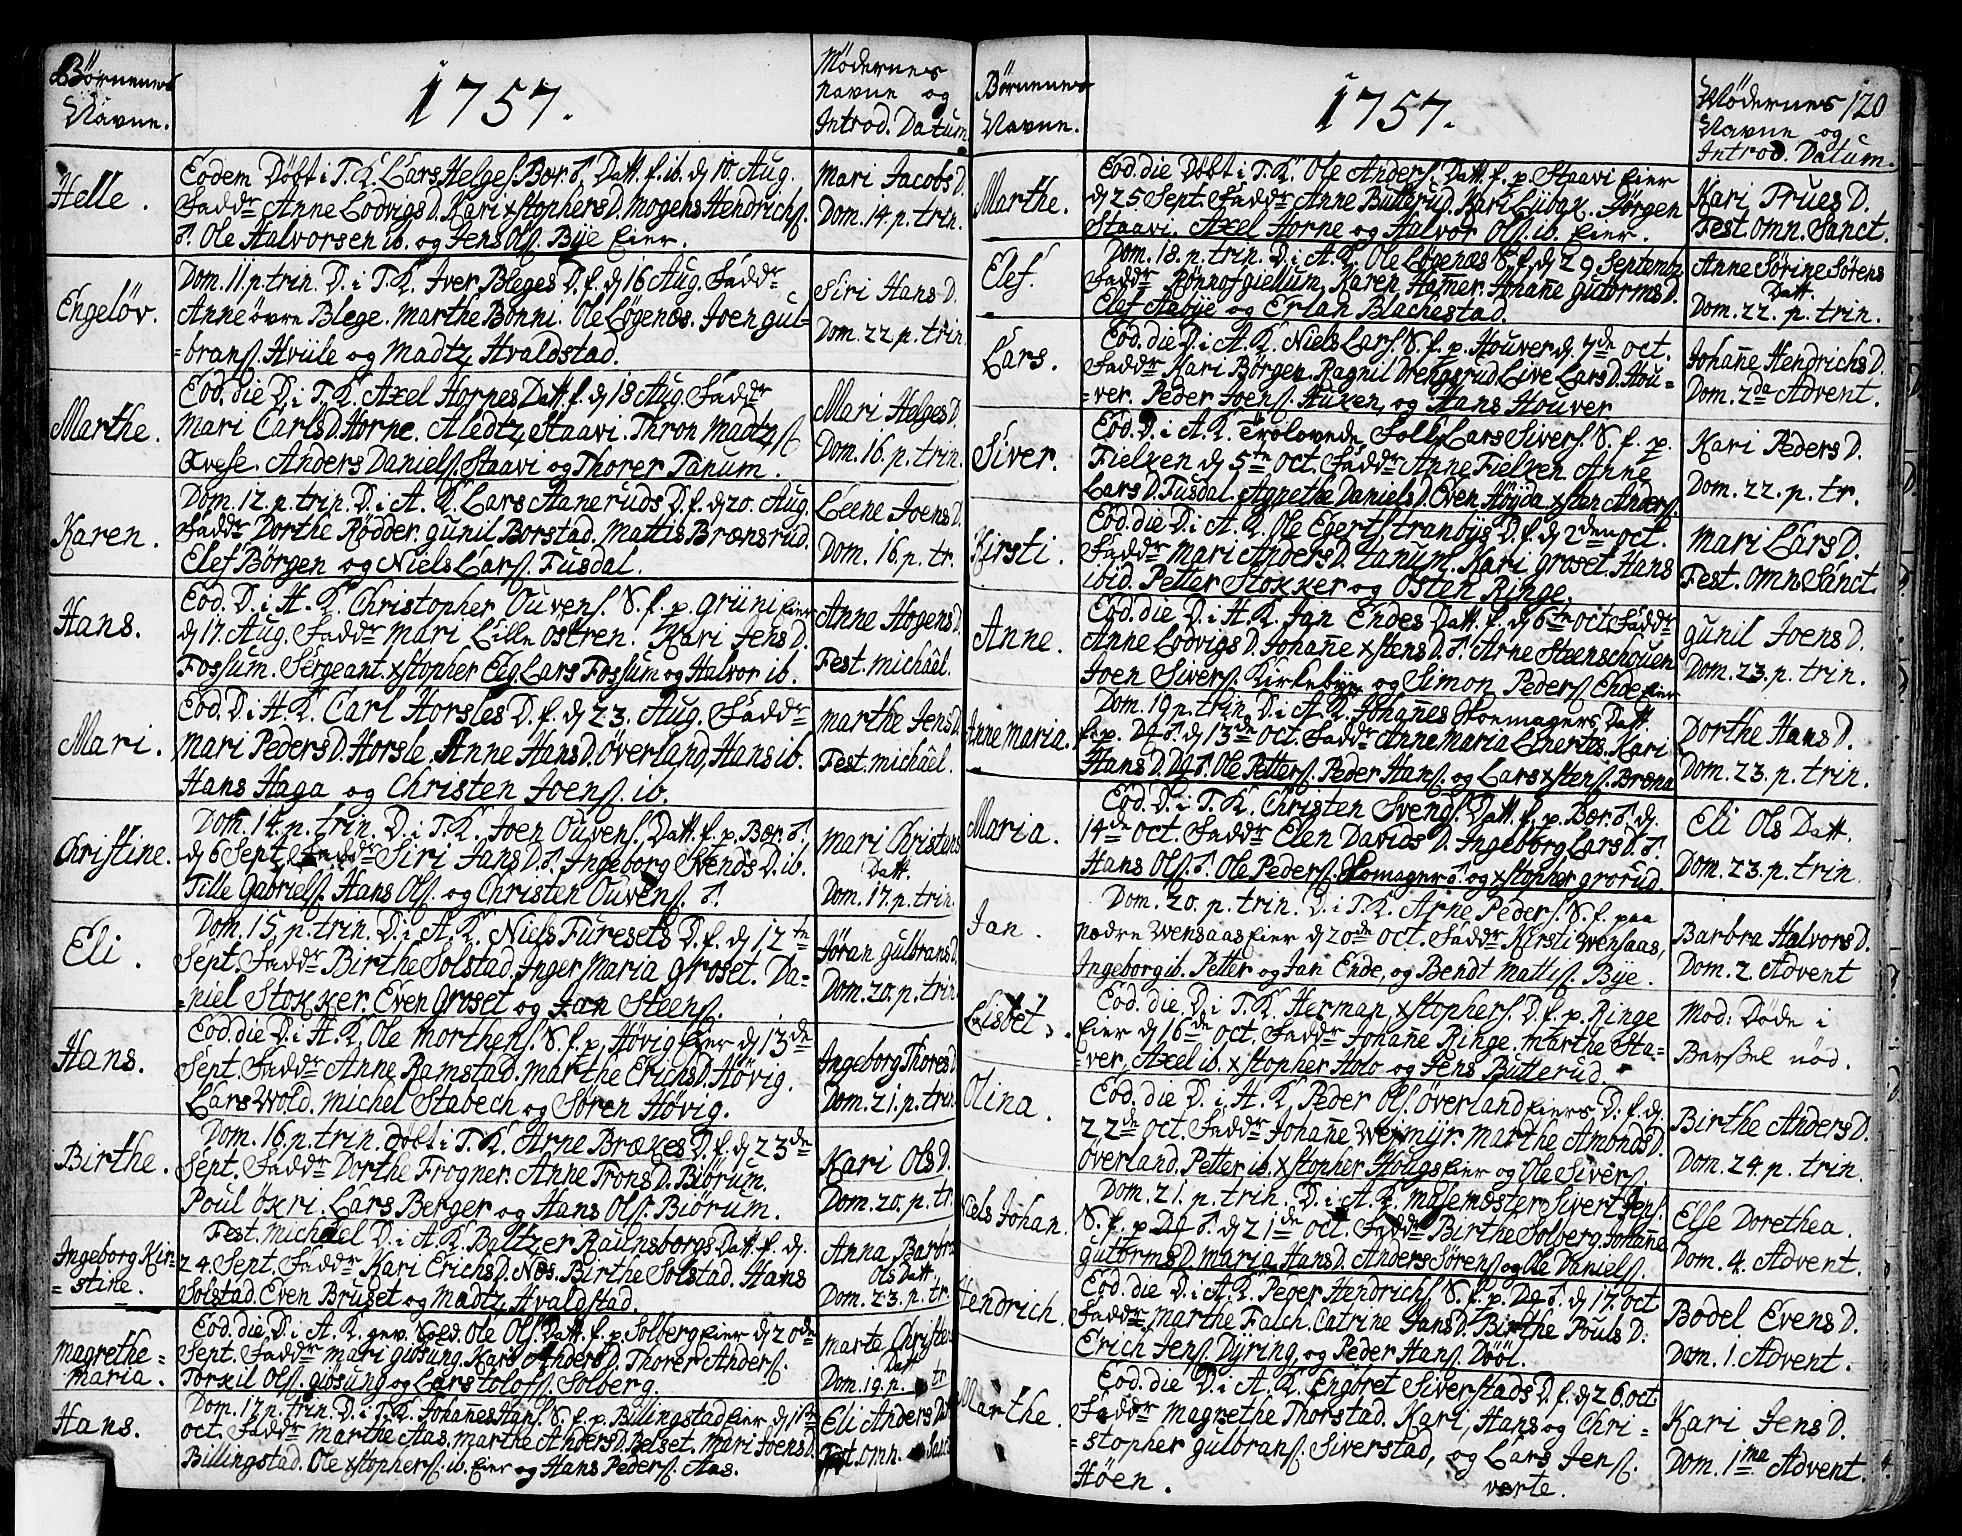 Børnenes
Navne.
1757.
Mødernes
navne og
Introd. Datum
Helle.
Eodem Døbt i T. K. Lars Helges. Bor. ♂. Datt. f. ib. d 10 Aug.
Faddr Anne Lodvigs D. Kari xstophers D. Mogens Hendrichs.
♂. Ole Halvorsen ib. og Jens Ols. Bye Eier.
Mari Jacobs D.
Dom. 14. p. trin.
Engeløv.
Dom. 11. p. trin. D. i T. K. Iver Bleges D. f. d 16 Aug. Faddr
Anne øvre Blege. Marthe Bonni. Ole Løgenæs. Joen gul-
=brans. Hvile og Madtz Hvaldstad.
Siri Hans D.
Dom. 22. p. trin.
Marthe.
Eod. die D. i T. K. Axel Hornes Datt. f. d 18 Aug. Faddr
Mari Carls D. Horne. Aledtz Staavi. Thron Madtzs.
Kvese. Anders Daniels. Staavi og Thorer Tanum.
Mari Helges D.
Dom. 16. p. trin.
Karen.
Dom. 12. p. trin. D. i A. K. Lars Aaneruds D. f. d 20. Aug.
Faddr Dorthe Rødder. gunil Borstad. Mattis Brænsrud.
Elef Børgen og Niels Lars. Fusdal.
Leene Joens D.
Dom. 16. p. tr.
Hans.
Eod. D. i A. K. Christopher Ouvens. S. f. p. grini Eier
d 17. Aug. Faddr Mari Lille ostren. Kari Jens D.
Fossum. Sergeant xstopher Eeg. Lars Fossum og Halvor ib.
Anne Hogens D.
Fest. michaël.
Mari.
Eod. D. i A. K. Carl Horsles D. f. d 23. Aug. Faddr
Mari Peders D. Horsle. Anne Hans D. øverland, Hans ib.
Hans Haga og Christen Joens. ib.
marthe Jens D.
Fest. michaël.
Christine.
Dom. 14. p. trin. D. i T. K. Joen Ouvens. Datt. f. p. Bær. ♂.
d 6 Sept. Faddr Siri Jans D. ♂. Ingeborg Svends D. ib.
Tille Gabriels. Hans Ols. og Christen Ouvens. ♂.
Mari Christens
Datt.
Dom. 17. p. trin.
Eli.
Dom. 15. p. trin. D. i A. K. Niels Furesets D. f. d 12te
Sept. Faddr Birthe Solstad. Inger Maria groset. Da-
=niel Stokker. Even Groset og Jan Steens.
Jøran gulbrans D.
Dom. 20. p. trin.
Hans.
Eod. die D. i A. K. Ole Morthens. S. f. p. Høvig Eier d 13de
Sept. Faddr Anne Ramstad. Marthe Erichs D. Høvig.
Lars Wold. Michel Stabech og Søren Høvig.
Ingeborg Thores D.
Dom. 21. p. trin.
Birthe.
Dom. 16. p. trin. døbt i T. K. Arne Brækes D. f. d 23de
Sept. Faddr Dorthe Frogner. Anne Trons D. Biørum.
Poul økri. Lars Berger og Hans Ols. Biørum.
Kari Ols D.
Dom. 20. p. tr.
Ingeborg Kir-
=stine.
Fest. Michael D. i A. K. Baltzer Raunsborgs Datt. f. d.
24. Sept. Faddr Kari Erichs D. Næs. Birthe Solstad. Hans
Solstad. Even Bruset og Madtz Hvaldstad.
Anna Barbra
Ols Datt.
Dom. 23. p. tr.
Magrethe=
maria.
Eod. die D. i A. K. gev. Sold. Ole Ols. Datt. f. p. Solberg Eier d 20de
Sept. Faddr Mari giosung. Kari Anders D. Thorer Anders.
Torkil Ols. giosung og Lars tolofs. Solberg.
Marte Christens
Datt.
Dom. 19. p. tr.
Hans.
Dom. 17. p. trin. D. i T. K. Johannes Hans. S. f. p. Billingstad Eier d 1ste
Oct. Faddr Marthe Aas. Marthe Anders D. Belset. Mari Joens D.
Billingstad. Ole xstophers. ib. Eier og Hans Peders. Aas.
Eli Anders Datt
Fest. Omn. Sanct
Børnenes
Navne.
1757.
Mødernes 120
Navne og
Introd. Datum.
Marthe.
Eod. die Døbt i T. K. Ole Anders. Datt. f. p. Staavi Eier
d 25 Sept. Faddr Anne Butterud. Kari Lubak. Jørgen
Staavi. Axel Horne og Halvor Ols. ib. Eier.
Kari Trues D.
Fest. Omn. Sanct.
Elef.
Dom. 18. p. trin. D. i A. K. Ole Løgenæs S. f. d 29 Septembr
Faddr Rønnof giellum. Karen Hamer. Johane gutorms D.
Elef Aabye og Erlan Blachestad.
Anne Sørine Sørens
Datt.
Dom. 22. p. trin.
Lars.
Eod. die D. i A. K. Niels Lars. S. f. p. Houver d 7de Oct.
Faddr Kari Børgen. Ragnil Drengsrud. Live Lars D. Hou-
=ver. Peder Joens. Huken og Hans Houver
Johane Hendrichs D.
Dom. 2da Advent.
Siver.
Eod. D. i A. K. Trolovede Folk Lars Sivers. S. f. p.
Fielken d 5te Oct. Faddr Anne Fielken Anne
Lars D. Fusdal. Agnethe Daniels D. Even Høyda xsten Anders.
Kari Peders D.
Dom. 22. p. tr.
Kirsti.
Eod. die D. i A. K. Ole Egerts. tranbys D. f. d 2den Oct.
Faddr Mari Anders D. Tanum. Kari groset. Hans
ibid. Petter Stokker og Osten Ringe.
Mari Lars D.
Fest. Omn. Sanct.
Anne.
Eod. die D. i A. K. Jan Endes Datt. f. d 6te Oct Faddr
Anne Lodvigs D. Johane xstens D. ♂. Arne Steenschouen
Joen Sivers. Kirkebye og Simon Peders. Ende Eier
gunil Joens D.
Dom. 23. p. trin.
Anne Maria.
Dom. 19. p. trin. D. i A. K. Johannes Skomagers Datt
f. p. Dg ♂. d 13de Oct. Faddr Anne Maria Linertes. Kari
Hans D. Dg ♂. Ole Petters. Peder Hans. og Lars xstens. Brænd
Dorthe Hans D.
Dom. 23. p. trin.
Maria.
Eod. D. i T. K. Christen Svens. Datt. f. p. Bær. ♂. d.
14de Oct. Faddr Elen Davids D. Ingeborg Lars D. ♂.
Hans Ols. ♂. Ole Peders. Skomager ♂. og xstopher grorud.
Eli Ols Datt.
Dom. 23. p. trin.
Jan.
Dom. 20. p. trin. D. i T. K. Arne Peders. S. f. paa
nædre Wensaas Eier d 20de Oct. Faddr Kirsti Wensaas,
Ingeborg ib. Petter og Jan Ende, og Bendt Matts. Bye.
Barbra Halvors D.
Dom. 2. Advent
Lisbet.
Eod. die D. i T. K. Herman xstophers. D. f. p. Ringe
Eier d 16de Oct. Faddr Johane Ringe. Marthe Sta-
=ver, Axel ib. xstopher Holo og Jens Butterud.
Mod: Døde i
Barssel nød.
Olina.
Eod. die D. i A. K. Peder Ols. øverland Eiers D. f. d.
22de Oct. Faddr Johane Wejmyr. Marthe Amonds D.
øverland. Petter ib. xstopher Hougs Eier og Ole Sivers.
Birthe Anders D.
Dom. 24. p. trin.
Niels Johan.
Dom. 21. p. trin. D. i A. K. Masemester Sivert Jens.
S. f. p. Dg ♂. d 21de Oct. Faddr Birthe Solberg. Johane
gutorms D. Maria Hans D. Anders Sørens. og Ole Daniels.
Else Dorethea.
Dom. 4. Advent.
Hendrich.
Eod. die D. i A. K. Peger Hendrichs. S. f. p. Dg ♂. d 17. Oct
Faddr Marthe Falch. Catrine Jans D. Birthe Pouls D.
Erich Jens. Dyring, og Peder Hans. Dööl.
Bodel Evens D.
Dom. 1. Advent.
Marthe.
Eod. die D. i A. K. Engbret Siverstads D. f. d 26. Oct
Faddr Magrethe Thorstad. Kari, Hans og Chri-
=stopher gulbrans. Siverstad, og Lars Jens.
Høen.
verte.
Kari Jens D.
Dom. 1ma Advent.